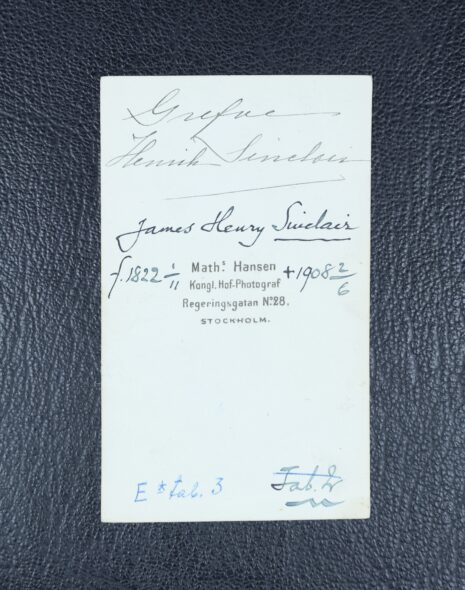 Grefve
Henrik Sinclair
James Henry Sinclair
f. 1822 1/11
Math.s Hansen
Kongl. Hof-Photograf
Regeringsgatan No 28.
STOCKHOLM.
+1908 2/6
E * tab. 3
Tab.